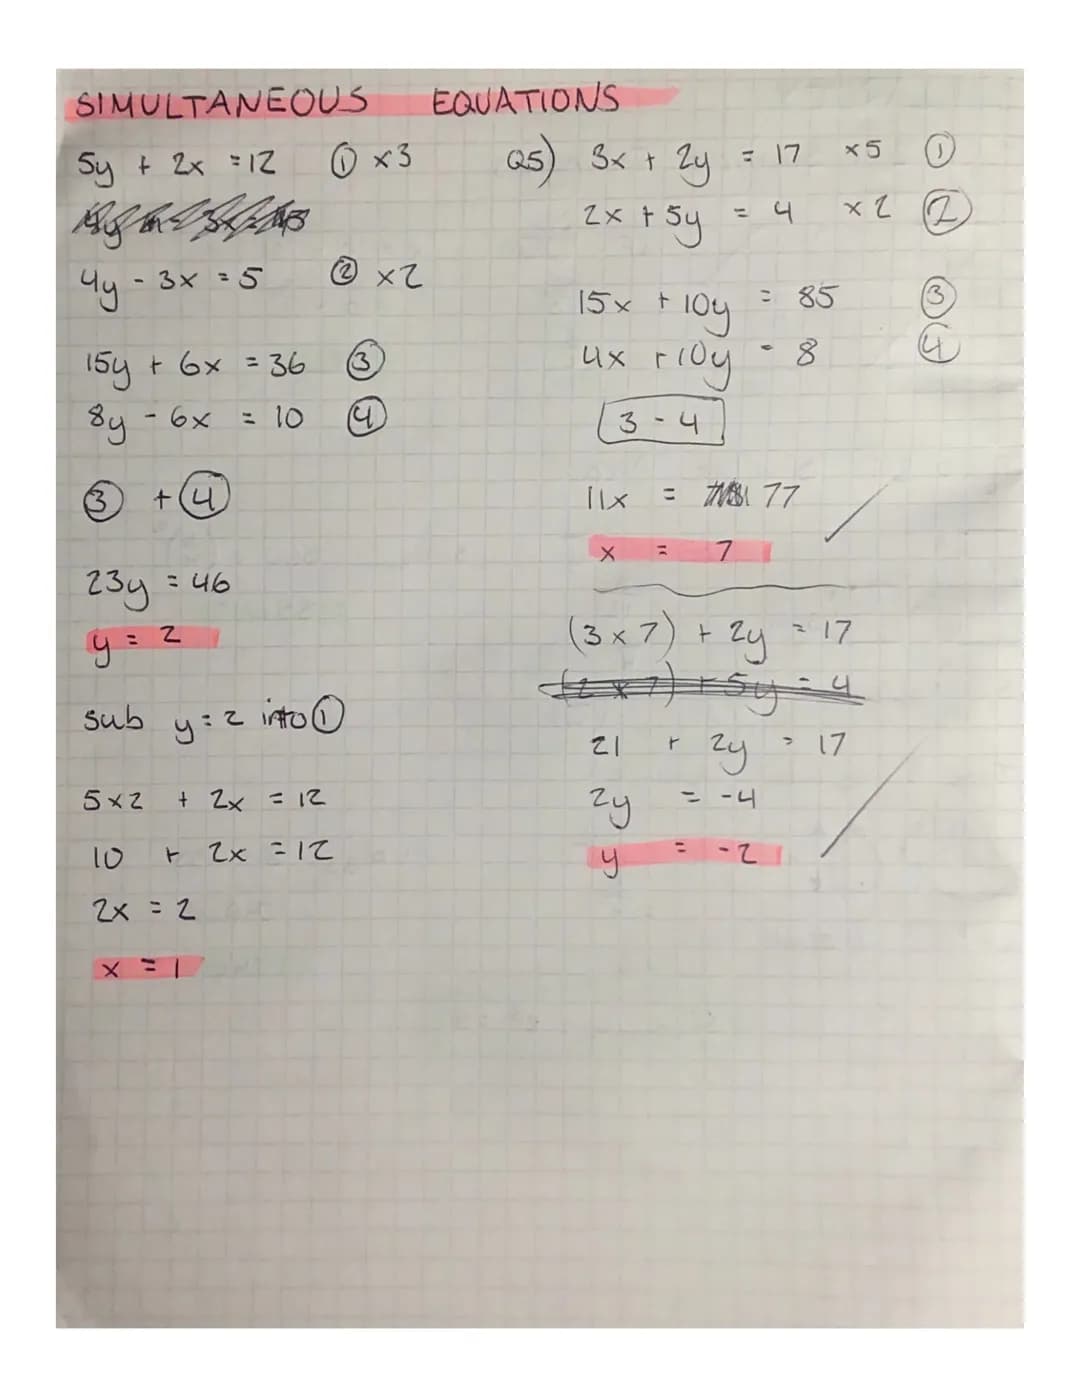 SIMULTANEOUS EQUATIONS
5y + 2x = 12 ① x3
4y - 3x = 5 ② x2
15y + 6x = 36 ③
8y - 6x = 10 ④
③ + ④
23y = 46
y = 2
sub y = 2 into ①
5x2 + 2x = 12
10 + 2x = 12
2x = 2
x = 1
Q5) 3x + 2y = 17 x5 ①
2x + 5y = 4 x2 ②
15x + 10y = 85 ③
4x + 10y = 8 ④
3 - 4
11x = 77
x = 7
(3 x 7) + 2y = 17
(2 x 7) + 5y = 4
21 + 2y = 17
2y = -4
y = -2